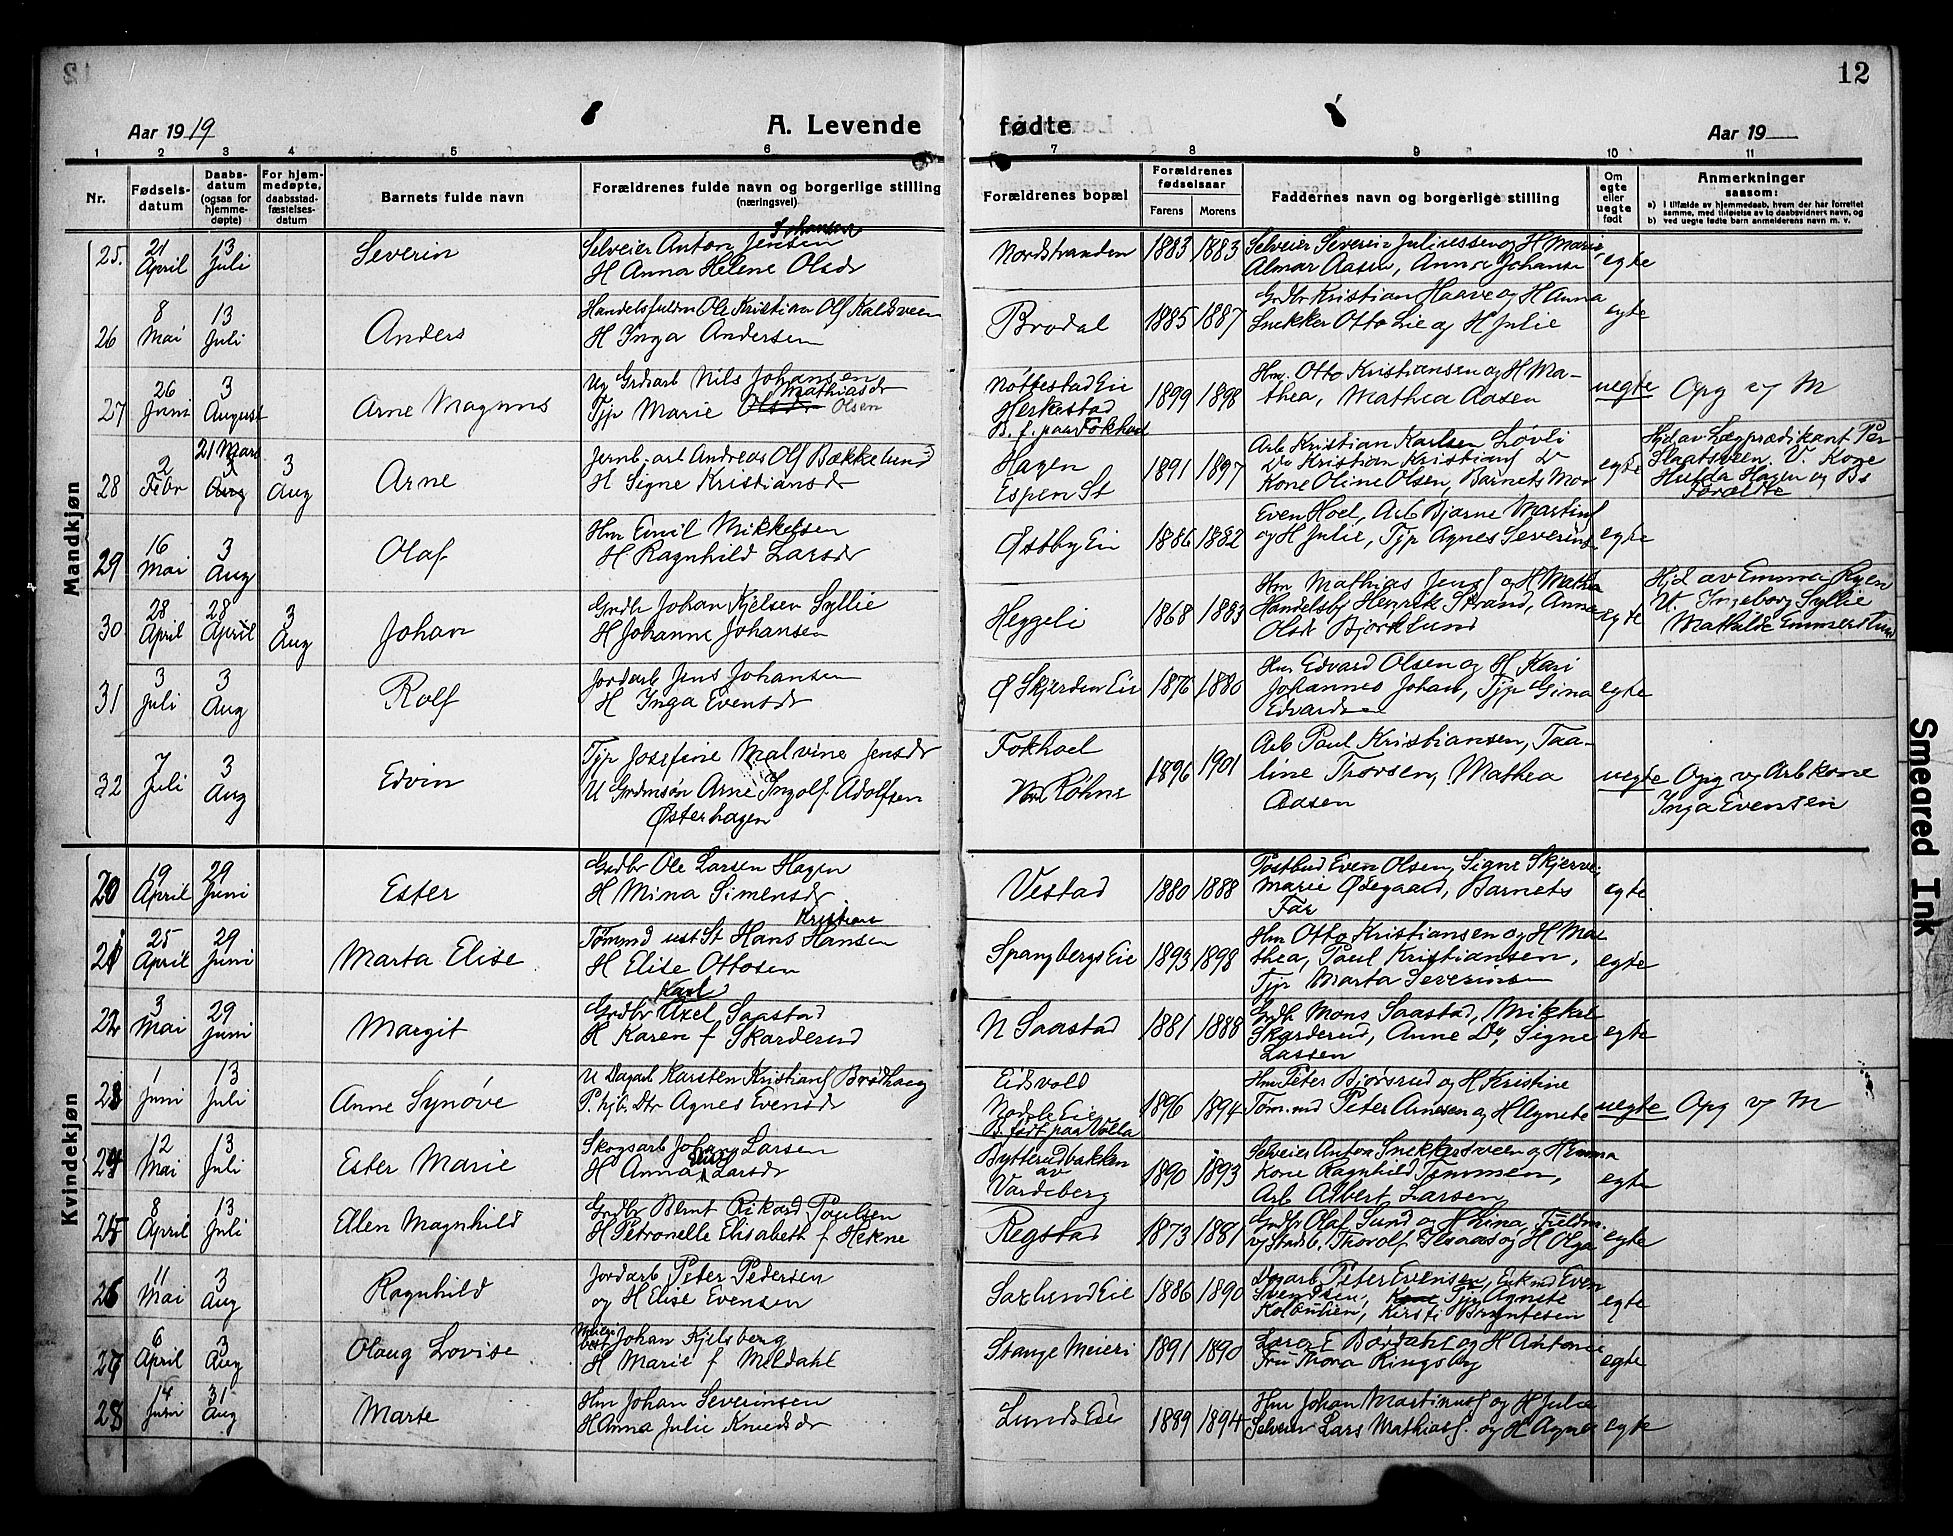 12
Aar 1919
A. Levende fødte
Aar 19
1 2 3 4 5 6 7 8 9 10 11
Nr.
Fødselsdatum
Daabsdatum (ogsaa for hjemmedøpte)
For hjemmedøpte, daabsstadfæstelsesdatum
Barnets fulde navn
Forældrenes fulde navn og borgerlige stilling (næringsvei)
Forældrenes bopæl
Forældrenes fødselsaar
Farens Morens
Faddernes navn og borgerlige stilling
Om egte eller uegte født
Anmerkninger saasom:
a) I tilfælde av hjemmedaab, hvem der har forrettet samme, med tilføielse av to daabsvidners navn, og
b) ved uegte fødte barn anmelderens navn m. v.
Mandkjøn
25. 21 April 13 Juli Severin
Selveier Anton Jensen Johansen
H Anna Helene Olsdr
Nordstranden 1883 1883
Selveier Severin Juliussen og H Marie,
Almar Aasen, Anna Johanse
egte
26 8 Mai 13 Juli Anders
Handelsfuldm Ole Kristian Ols Kaldsveen
H Inga Andersen
Brodal 1885 1887
Grdbr Kristian Haave og H Anna
Snekker Otto Lie og H Julie
egte
27 26 Juni 3 August Arne Magnus
Ug Grdsarb Nils Johansen
Tjp Marie Olsdr Mathiasdr Olsen
Nøttestad Eie
Herkestad
B. f. paa Fokhol
1899 1898
Hm. Otto Kristiansen og H Ma-
thea, Mathea Aasen
uegte Opg v M
28 2 Febr 21 Mars 3 Aug 3 Aug Arne
Jernb.arb Andreas Ols Bækkelund
H Signe Kristiansdr
Hagen
Espen St
1891 1897
Arb Kristian Karlsen Løvli
Do Kristian Kristians Do
Kone Oline Olsen, Barnets Mor
egte
Hjd av Lægprædikant Per
Slaatsveen V. Kone
Hulda Hagen og Bs
Forældre
29 16 Mai 3 Aug Olaf
Hm Emil Mikkelsen
H Ragnhild Larsdr
Østby Eie 1886 1882
Even Hoel, Arb Bjarne Martins
og H Julie, Tjp Agnes Severins
egte
30 28 April 28 April 3 Aug Johan
Grdbr Johan Kjelsen Syllie
H Johanne Johansen
Heggeli 1868 1883
Hm Mathias Jens og H Mathea
Handelsb Henrik Strand, Anna
Olsdr Bjørklund
egte
Hjd av Emma Ryen
V. Ingeborg Syllie
Mathilde Emmerstund
31 3 Juli 3 Aug Rolf
Jordarb Jens Johansen
H Inga Evensdr
Ø Skjerden Eie 1876 1880
Hm Edvard Olsen og H Kari
Johannes Johans, Tjp Gina
Edvards
egte
32 7 Juli 3 Aug Edvin
Tjp Josefine Malvine Jensdr
U Grdmsøn Arne Ingolf Adolfsen
Østerhagen
Fokhoel
N Røhne
1896 1901
Arb Paul Kristiansen, Taa-
line Thorsen, Mathea
Aasen
uegte
Opg v Arb kone
Inga Evensen
Kvindekjøn
20 19 April 29 Juni Ester
Grdbr Ole Larsen Hagen
H Mina Simensdr
Vestad 1880 1888
Postbud Even Olsen, Signe Skjerve,
Marie Ødegaard, Barnets
Far
egte
21 25 April 29 Juni Marta Elise
Tømmd ust St Hans Hansen Kristians
H Elise Ottosen
Spangbergs Eie 1893 1898
Hm Otto Kristiansen og H Ma-
thea, Paul Kristiansen,
Tjp Marta Severinsen
egte
22 3 Mai 29 Juni Margit
Grdbr Karl Axel Saastad
H Karen f Skarderud
N Saastad 1881 1888
Grdb Mons Saastad, Mikkel
Skarderud, Anne Do, Signe
Lassen
egte
23 1 Juni 13 Juli Anne Synøve
U Dagarb Karsten Kristians Brødhaug
P. hjv. Dtr Agnes Evensdr
Eidsvold
Nodole Eie
B. født paa Volla
1896 1894
Hm Peter Bjørsrud og H Kristine
Tøm.md Peter Arnesen og H Agnete
uegte Opg v M
24 12 Mai 13 Juli Ester Marie
Skogsarb Johan Larsen
H Anna Larsdr
Bytterudbakken
av
Vardeberg
1890 1893
Selveier Anton Snekkersveen og H Emma
Kone Ragnhild Simensen,
Arb Albert Larsen
egte
25 8 April 13 Juli Ellen Magnhild
Grdbr Bernt Rikard Paulsen
H Petronelle Elisabeth f Hekne
Regstad 1873 1881
Grdbr Olaf Sund og H Lina, Fuldm.
v Stadsb. Thorolf Ilsaas og H Olga
egte
26 11 Mai 3 Aug Ragnhild
Jordarb Peter Pedersen
og H Elise Evensen
Saxlund Eie 1886 1890
Dagarb Peter Evensen, Eikmd Even
Svendsen, Kone Tjp Agnete
Kolomoien, Kirsti Bryntesen
egte
27 6 April 3 Aug Olaug Lovise
Johan Kjelsberg
H Marie f Meldahl
Stange Meieri 1891 1890
Lars E Børdahl og H Antonie
Fru Thora Ringsby
egte
28 14 Juni 31 Aug Marte
Hm Johan Severinsen
H Anna Julie Knudsdr
Lunds Eie 1889 1894
Hm Johan Martinus og H Julie
Selveier Lars Mathias. og H Agnes
egte
Smeared Ink